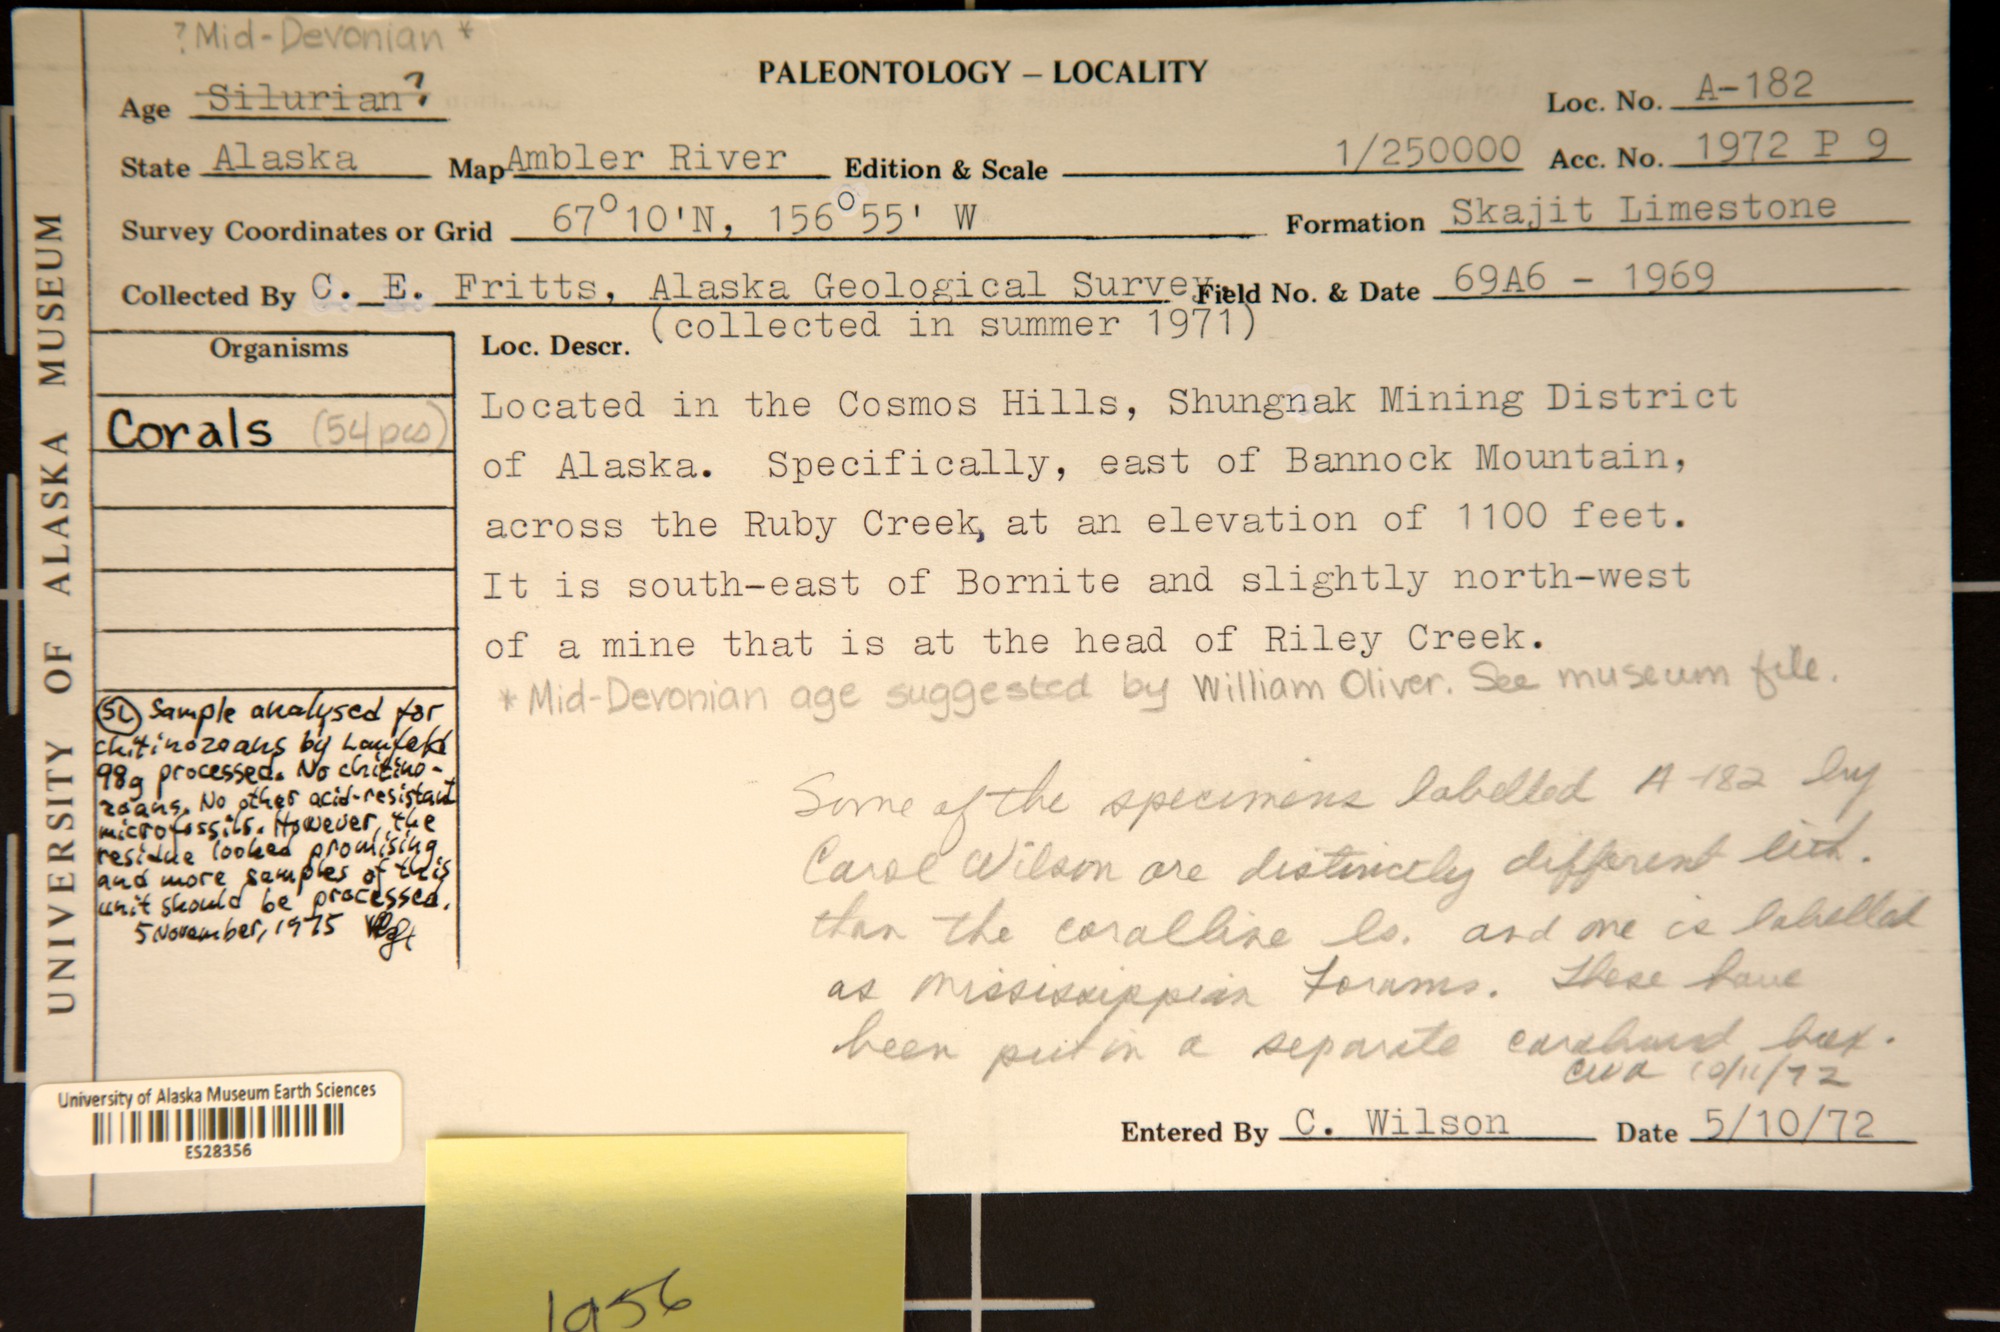 ?Mid-Devonian *
PALEONTOLOGY – LOCALITY
Age Silurian?
Loc. No. A-182
State Alaska Map Ambler River Edition & Scale 1/250000 Acc. No. 1972 P 9
Survey Coordinates or Grid 67°10'N, 156°55' W Formation Skajit Limestone
Collected By C. E. Fritts, Alaska Geological Survey. Field No. & Date 69A6 - 1969
(collected in summer 1971)
Organisms
Loc. Descr.
Corals (54 pcs)
Located in the Cosmos Hills, Shungnak Mining District
of Alaska. Specifically, east of Bannock Mountain,
across the Ruby Creek, at an elevation of 1100 feet.
It is south-east of Bornite and slightly north-west
of a mine that is at the head of Riley Creek.
* Mid-Devonian age suggested by William Oliver. See museum file.
SL Sample analysed for
chitinozoans by Laufeld
98g processed. No chitino-
zoans. No other acid-resistant
microfossils. However, the
residue looked promising
and more samples of this
unit should be processed.
5 November, 1975
Some of the specimens labelled A-182 by
Carol Wilson are distinctly different lith.
than the coralline ls. and one is labelled
as Mississippian Forams. These have
been put in a separate cardboard box.
CWA 10/11/72
Entered By C. Wilson Date 5/10/72
UNIVERSITY OF ALASKA MUSEUM
University of Alaska Museum Earth Sciences
ES28356
1956